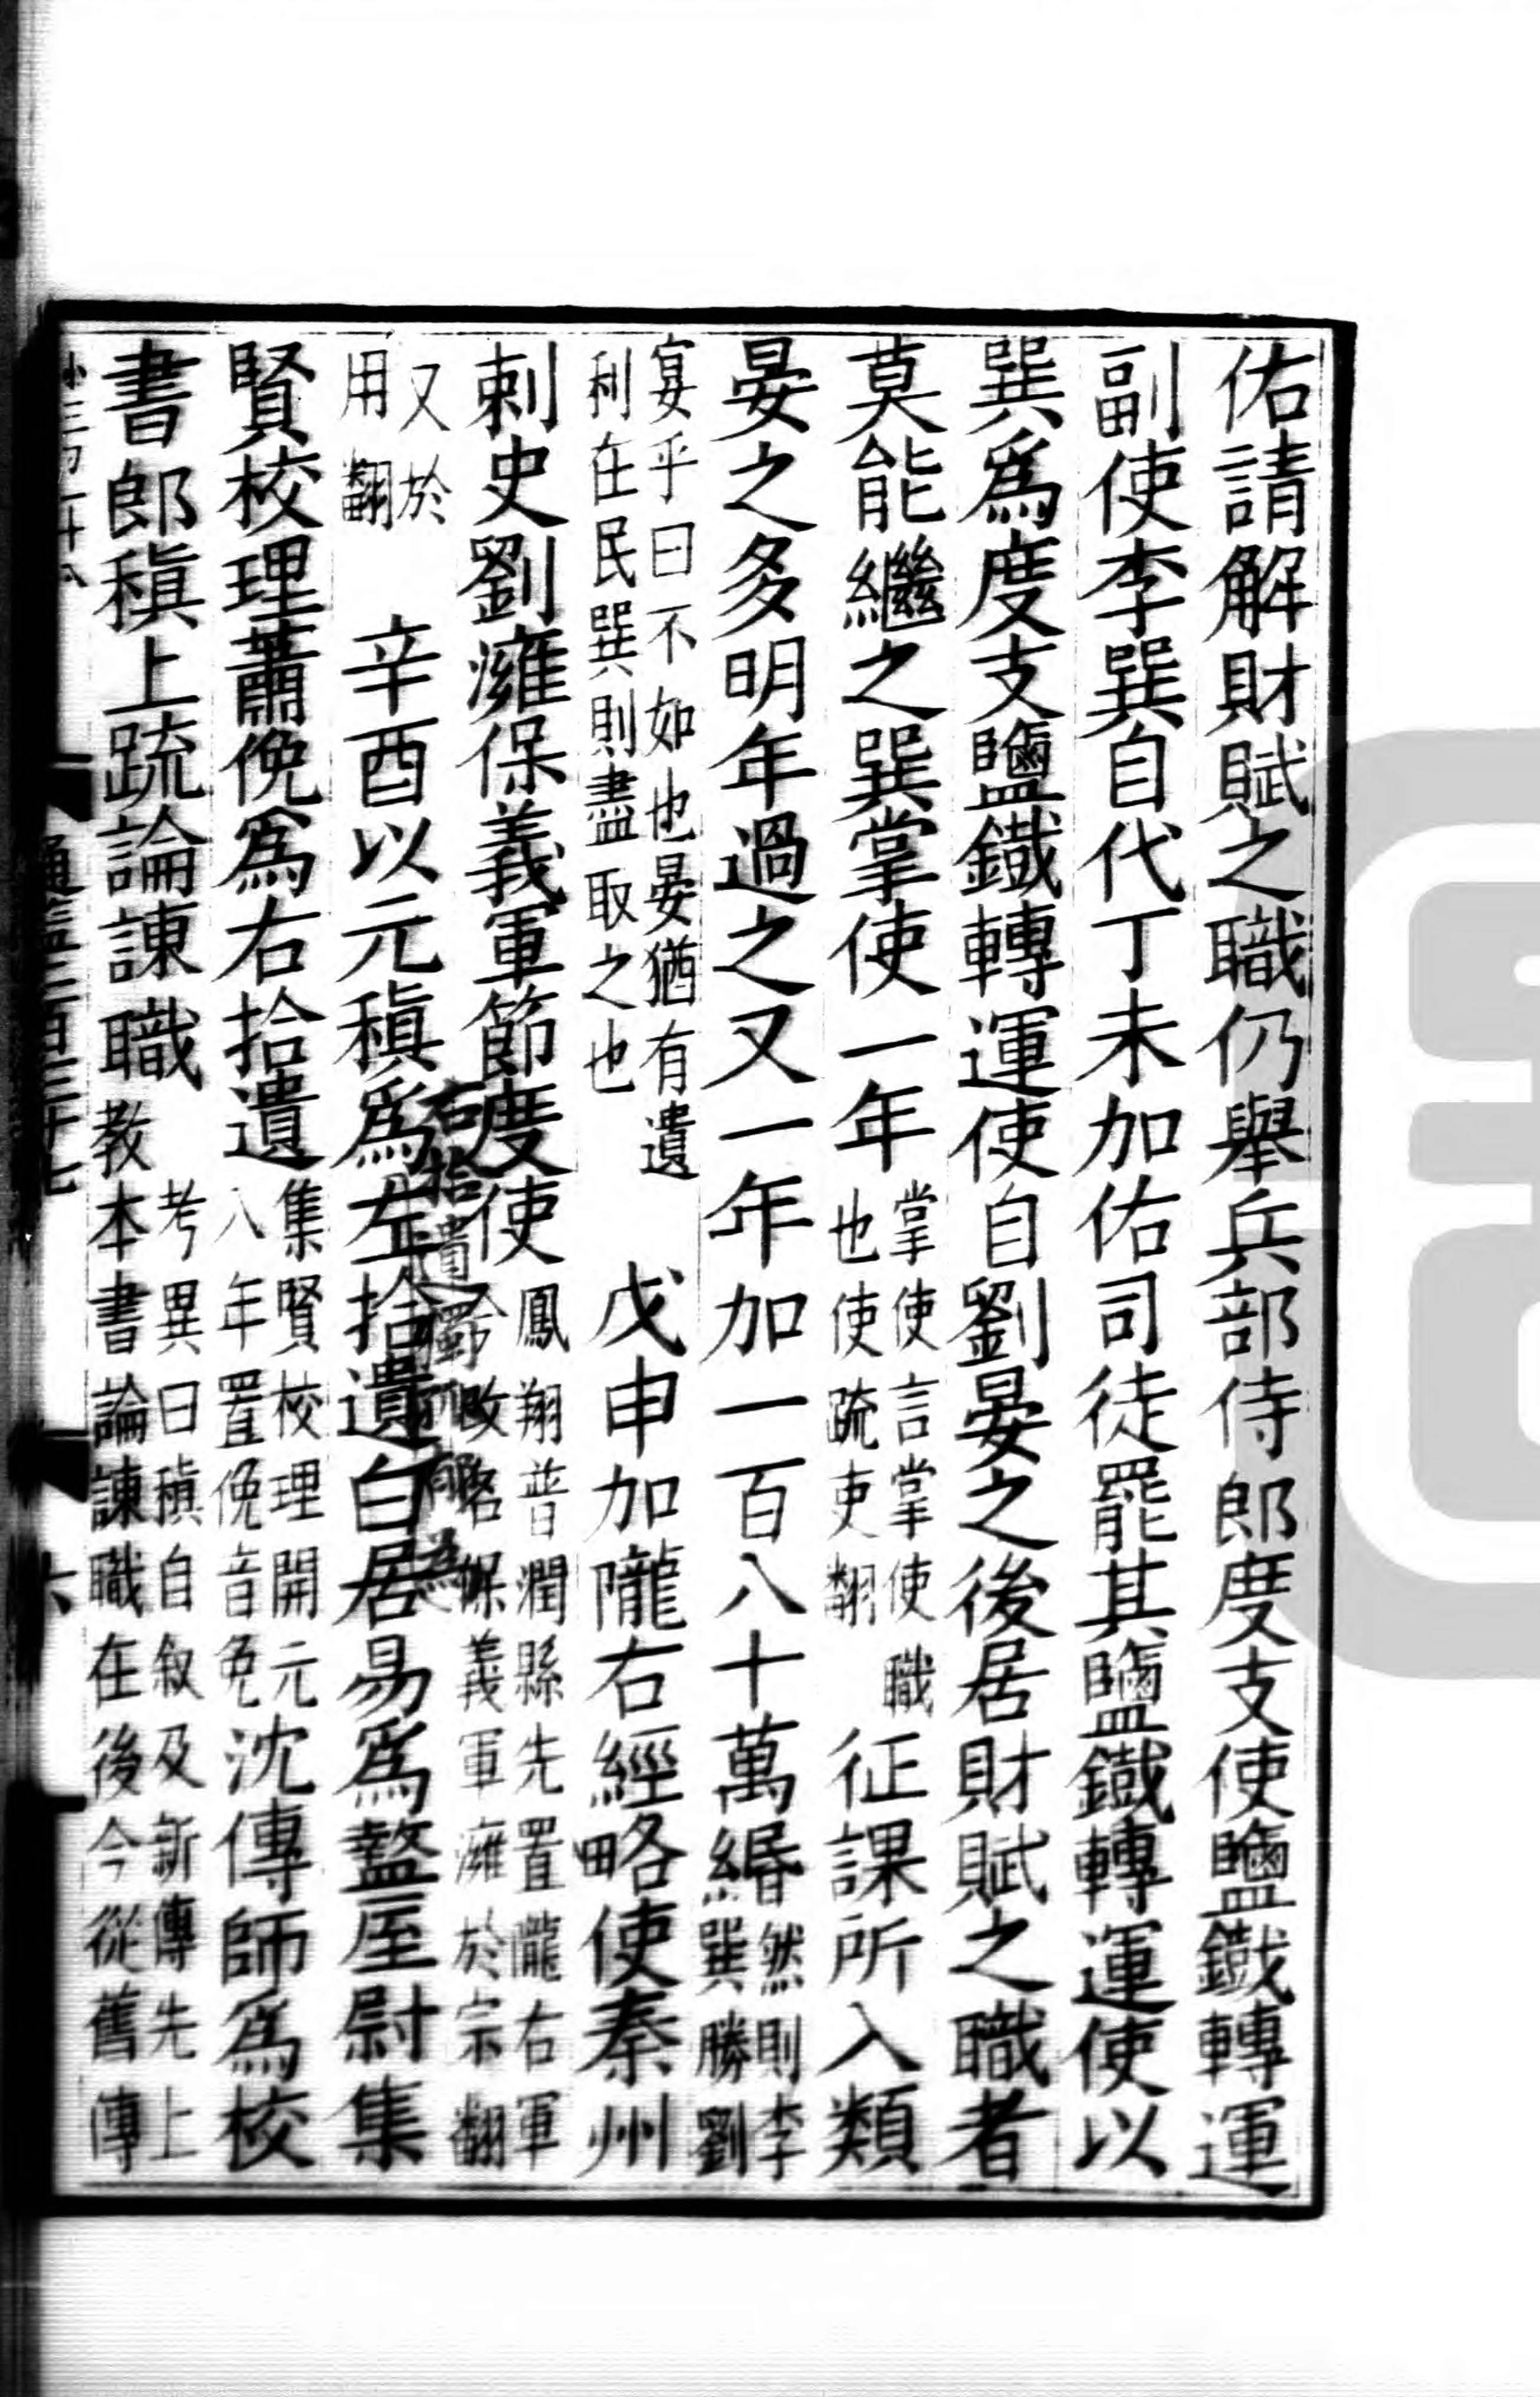 佑請解財賦之職仍舉兵部侍郎度支使鹽鐵轉運
副使李巽自代丁未加佑司徒罷其鹽鐵轉運使以
巽爲度支鹽鐵轉運使自劉晏之後居財賦之職者
莫能繼之巽掌使一年掌使言掌使職也使疏吏翻征課所入類
晏之多明年過之又一年加一百八十萬緡然則李巽勝劉
宴乎曰不如也晏猶有遺利在民巽則盡取之也戊申加隴右經略使秦州
刺史劉澭保義軍節度使鳳翔普潤縣先置隴右軍今改名保義軍澭於宗翻
又於用翻辛酉以元稹爲左拾遺白居易爲盩厔尉集
賢校理蕭俛爲右拾遺集賢校理開元八年置俛音免沈傳師爲校
書郎稹上疏論諫職考異曰稹自叙及新傳先上教本書論諫職在後今從舊傳
通鑑二百三十七
六